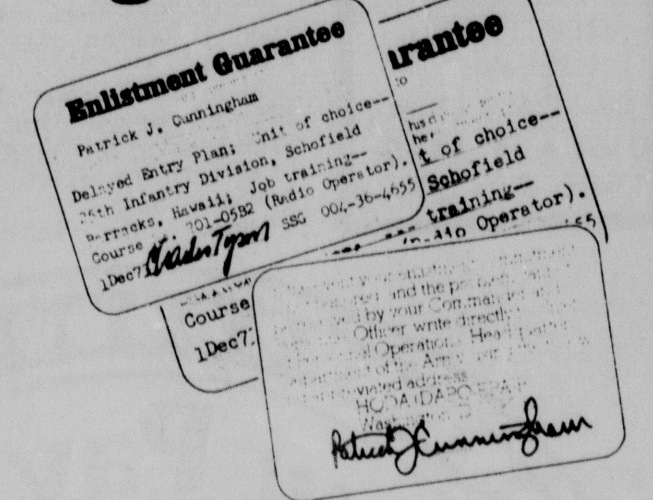 Enlistment Guarantee
Patrick J. Cunningham
Delayed Entry Plan; Unit of choice--
25th Infantry Division, Schofield
Barracks, Hawaii; Job training--
Course 201-05B2 (Radio Operator).
1Dec7 Charles Tyson SSG 004-36-4655
arantee
t of choice--
Schofield
training--
Operator).
55
Course
1Dec7
your enlistment
and the
by your Commander
Officer write directly
Operations, Headquarters
of the Army
address
HQDA (DAPO-EPA
Washington D
Patrick J Cunningham